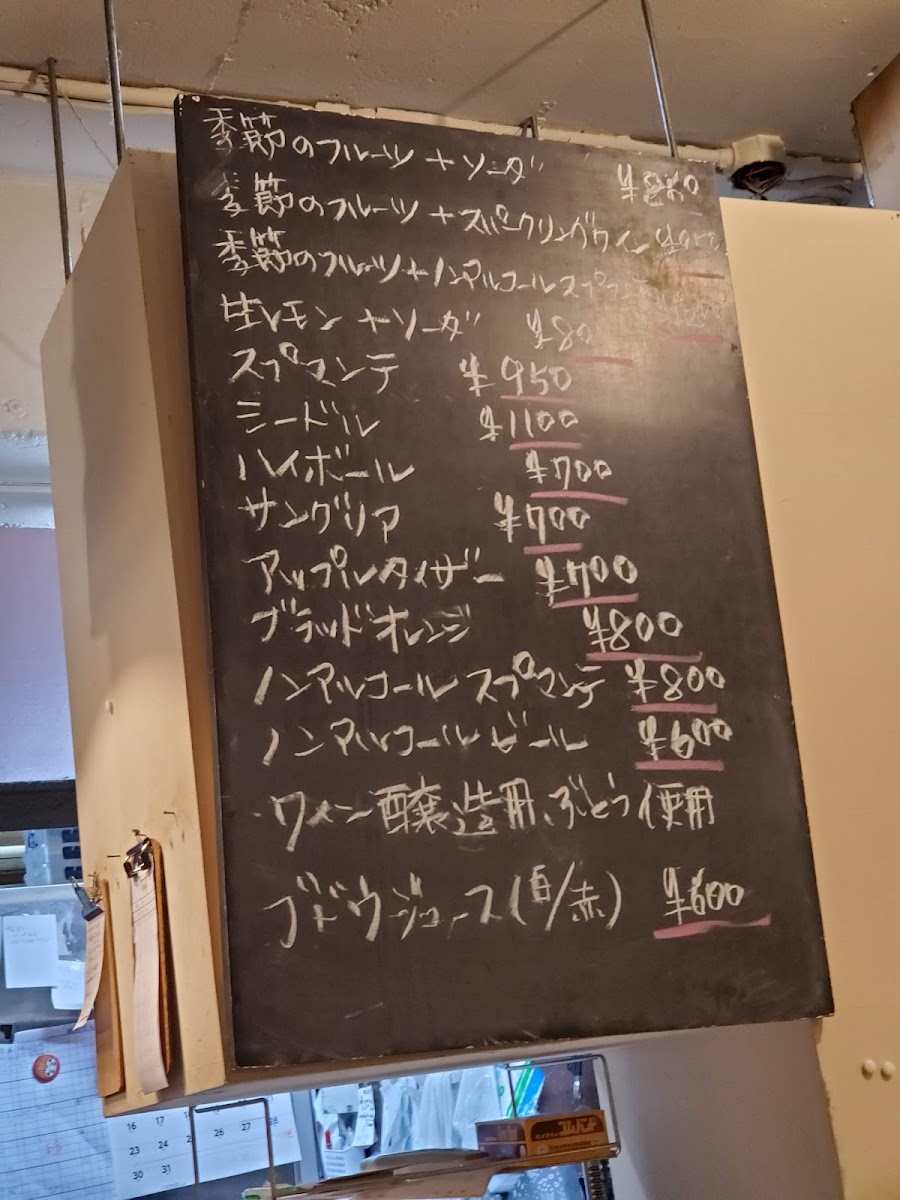 季節のフルーツ + ソーダ
季節のフルーツ + スパークリングワイン
季節のフルーツ + ノンアルコールスプマンテ
生レモン + ソーダ ¥800
スプマンテ ¥950
シードル ¥1100
ハイボール ¥700
サングリア ¥700
アップルタイザー ¥700
ブラッドオレンジ ¥800
ノンアルコールスプマンテ ¥800
ノンアルコールビール ¥600
・ワイン醸造用ぶどう使用
ブドウジュース(白/赤) ¥600
16 17
23 24 26 27 28
30 31